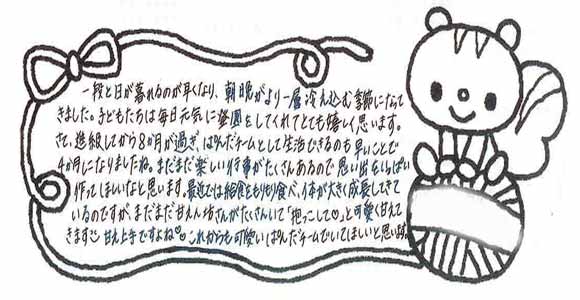 一段と日が暮れるのが早くなり、朝晩がより一層冷え込む季節になって
きました。子どもたちは毎日元気に登園をしてくれてとても嬉しく思います。
さて、進級してから8か月が過ぎ、ぱんだチームとして生活できるのも早いことで
4か月になりましたね。まだまだ楽しい行事がたくさんあるので思い出をいっぱい
作ってほしいなと思います。最近では給食をもりもり食べ、体が大きく成長してきて
いるのですが、まだまだ甘えん坊さんがたくさんいて「抱っこして♡」と可愛く甘えて
きます 甘え上手ですよね♡ これからも可愛いぱんだチームでいてほしいと思います。